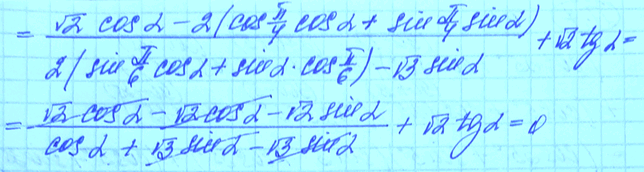 = (√2 cos α − 2(cos π/4 cos α + sin π/4 sin α)) / (2(sin π/6 cos α + sin α · cos π/6) − √3 sin α) + √2 tg α =
= (√2 cos α − √2 cos α − √2 sin α) / (cos α + √3 sin α − √3 sin α) + √2 tg α = 0